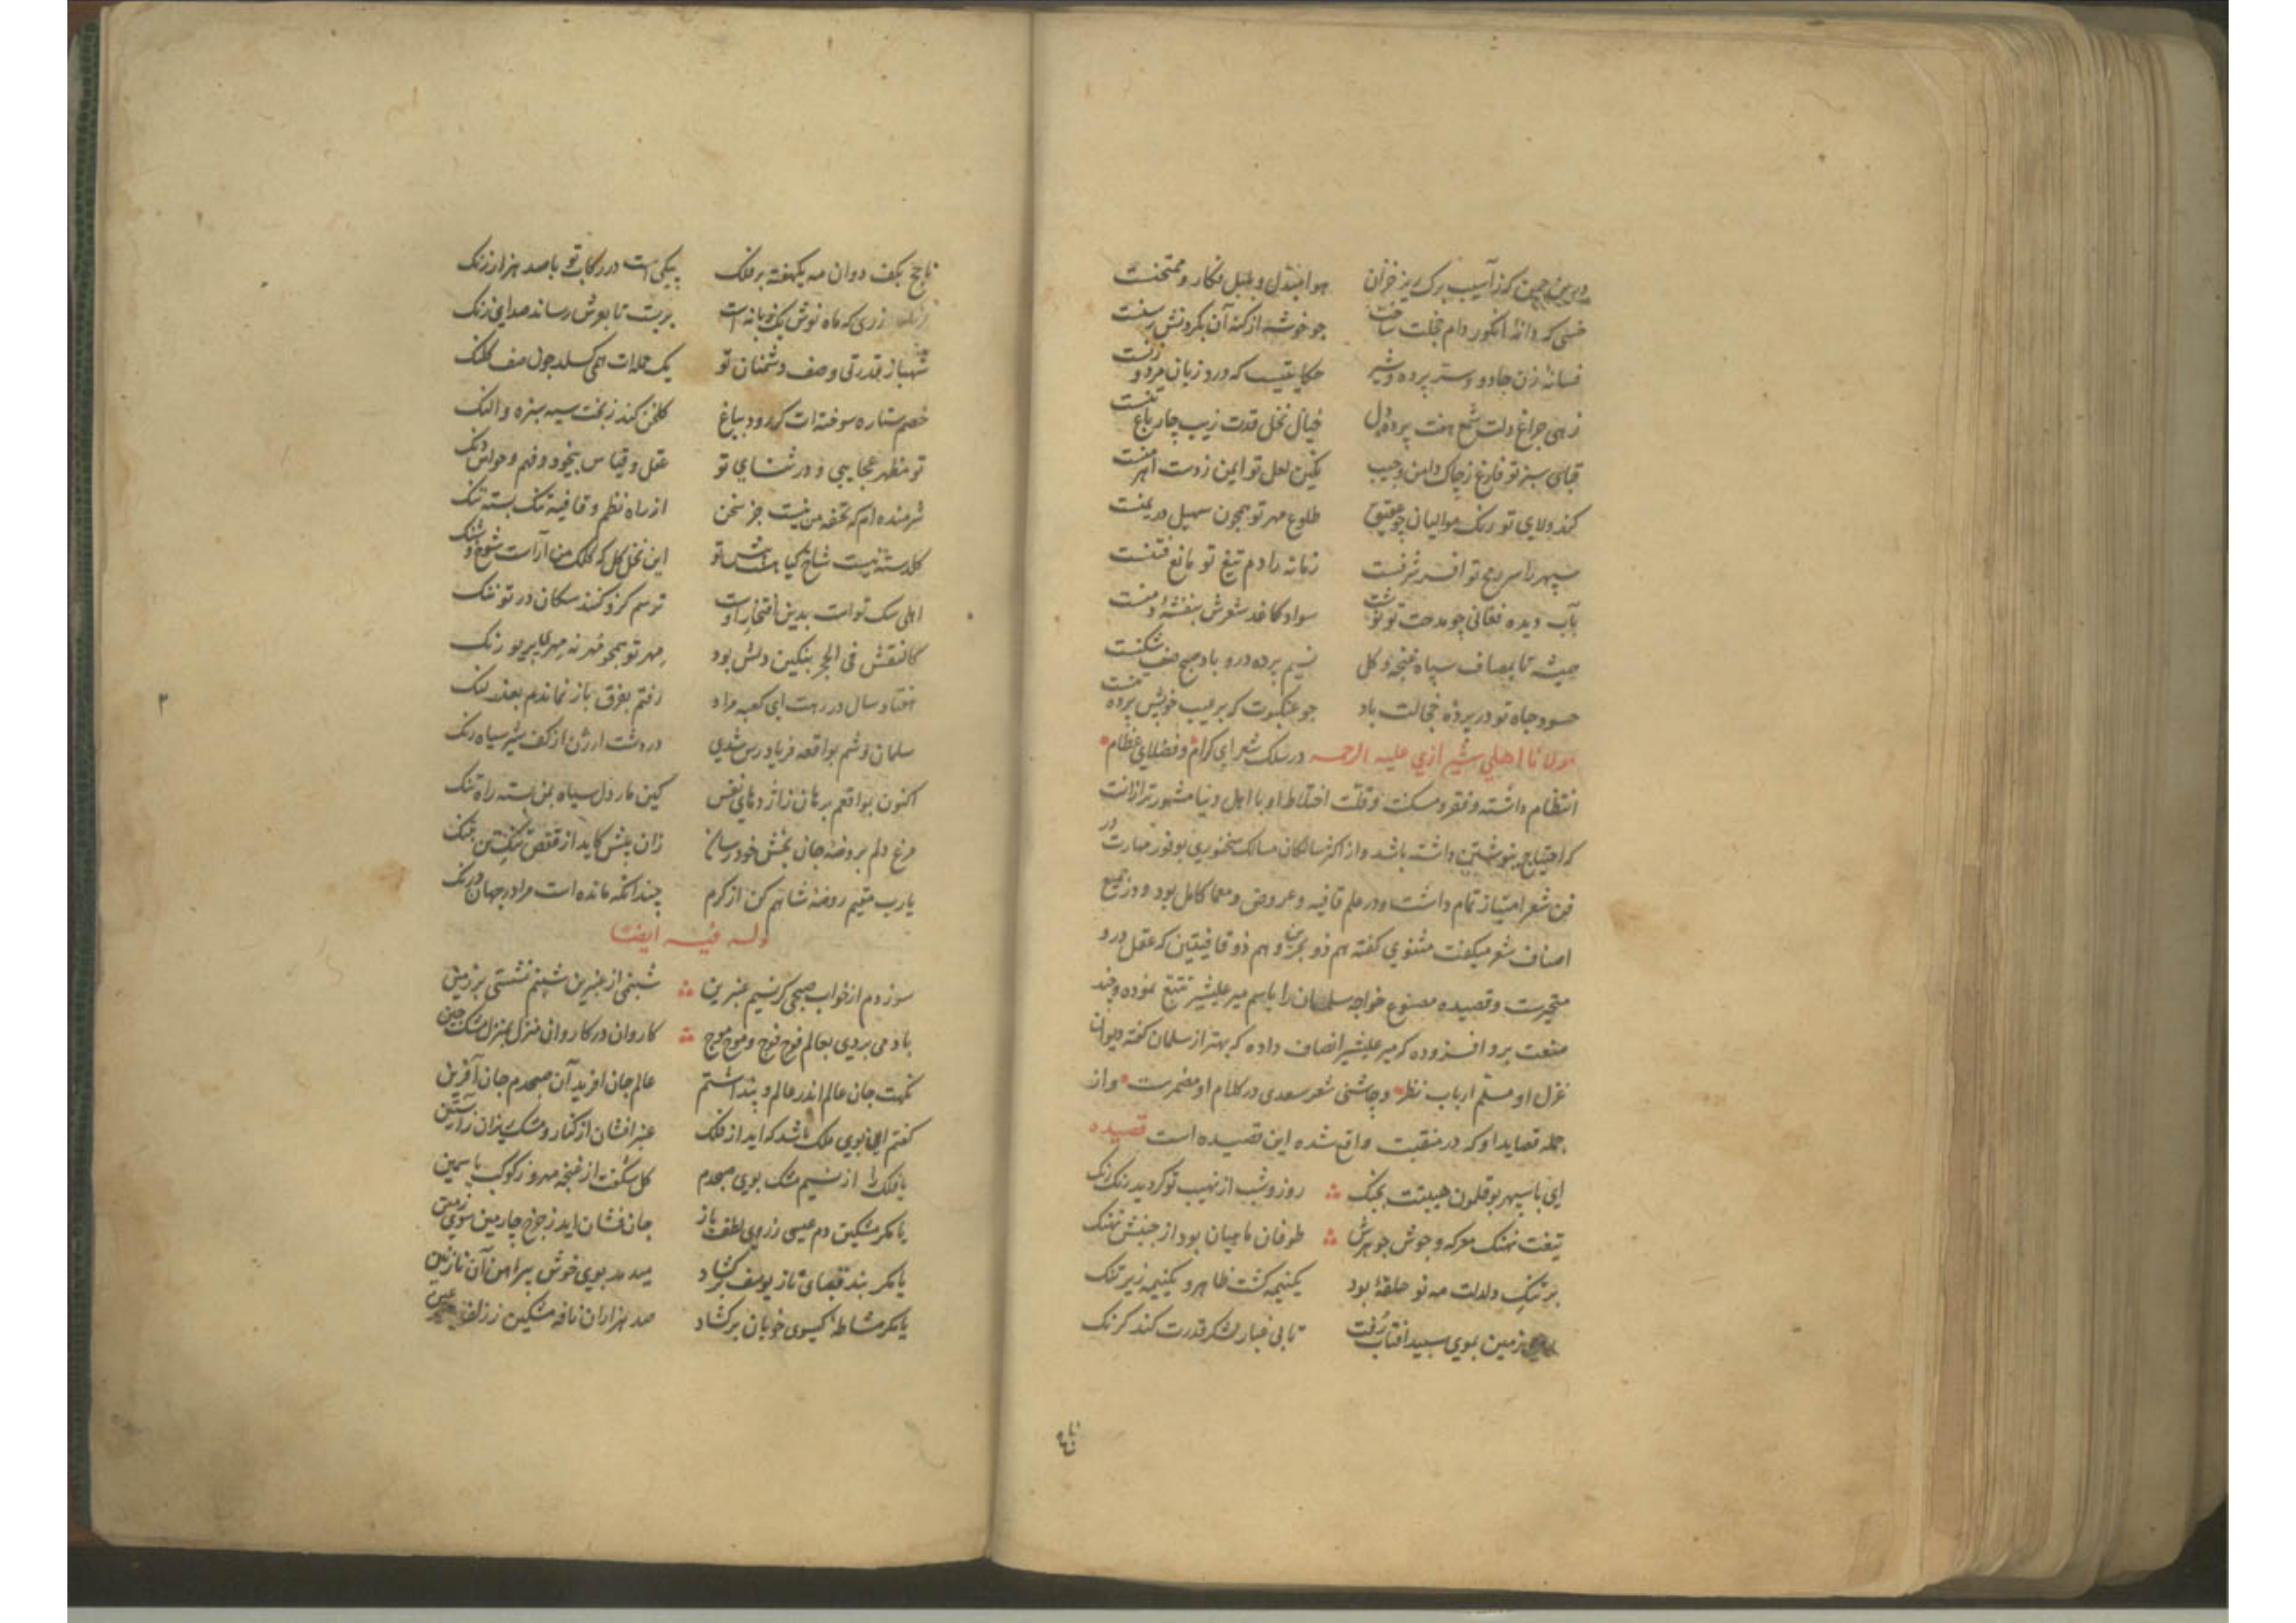 درین چمن که ز آسیب برک ریز خزان هوا مبتدل و بلبل فکار و ممتحنست
خسی که دانهٔ انکور دام خجلت ساخت چو خوشه از کنه آن بکردنش رسنست
فسانهٔ زن جادو و ستر پرده و شیر حکایتیست که درد زبان مرد و زنست
زهی چراغ دلت شمع هفت پردهٔ دل خیال نخل قدت زیب چار باغ تنست
قبای سبز تو فارغ ز چاک دامن و جیب نکین لعل تو ایمن ز دست اهرمنست
کند ولای تو رنک موالیان چو عقیق طلوع مهر تو همچون سهیل در یمنست
سپهر را سر درج تو افسر شرفست زمانه را دم تیغ تو مانع فتنست
بآب دیده فغانی چو مدحت تو نوشت سواد کاغذ شعرش بنفشه و سمنست
همیشه تا بمصاف سپاه غنچه و کل نسیم پرده در و باد صبح صف شکنست
حسود جاه تو در پردهٔ خجالت باد چو عنکبوت که بر عیب خویش پرده تنست
مولانا اهلي شیرازي علیه الرحمه در سلک شعرای کرام و فضلای عظام
انتظام داشته و فقر و مسکنت و قلت اختلاط او با اهل دنیا مشهورتر ازانست
که احتیاج بنوشتن داشته باشد و از اکثر سالکان مسالک سخنوری بوفور مهارت در
فن شعر امتیاز تمام داشت و در علم قافیه و عروض و معما کامل بود و در جمیع
اصناف شعر میکفت مثنوي کفته هم ذو بحرین و هم ذو قافیتین که عقل درو
متحیرست و قصیده مصنوع خواجه سلمان را باسم میر علیشیر تتبع نموده و چند
صنعت برو افزوده که میر علیشیر انصاف داده که بهتر از سلمان کفته دیوان
غزل او مسلم ارباب نظر و چاشنی شعر سعدی در کلام او مضمرست و از
جمله قصاید او که در منقبت واقع شده این قصیده است قصیده
ای با سپهر بوقلمون هیبتت بجنک روز و شب از نهیب تو کردید رنک رنک
تیغت نهنک معرکه و جوش جوهرش طوفان ماهیان بود از جنبش نهنک
بر تنک دلدلت مه نو حلقهٔ بود یکنیمه کشت ظاهر و یکنیمه زیر تنک
زمین بموی سپید آفتاب رفت تا بی غبار لشکر قدرت کند کرنک
ناچخ بکف دوان مه یکهفته بر فلک پیکی است در رکاب تو با صد هزار زنک
زری که ماه نوش یک زبانه است برست تا بعرش رساند صدای زنک
شهباز قدرتی و صف دشمنان تو یک حمله ات همی کسلد چون صف کلنک
خصم ستاره سوخته ات کر رود بباغ کلخن کند ز بخت سیه سبزه و النک
تو مظهر عجایبی و در ثنای تو عقل و قیاس بیخود و فهم و حواس دنک
شرمنده ام که تحفه من نیست جز سخن از راه نظم و قافیهٔ تنک بسته تنک
کلدسته نیست شاخ کیا هست پیش تو این نخل کل که کلک من آراست شوخ و شنک
اهلی سک تو است بدین افتخار اوست ترسم کزو کنند سکان در تو ننک
کالنقش فی الحجر بنکین دلش بود مهر تو همچو مهر نه مهری بریو رنک
هفتاد سال در رهت ای کعبه مراد رفتم بفرق باز نماندم بعذر لنک
سلمان و شم بواقعه فریاد رس شدی در دشت ارژن از کف شیر سیاه رنک
اکنون بواقعم برهان ز اژدهای نفس کین مار دل سیاه بمن بسته راه تنک
مرغ دلم بروضه جان بخش خود رسان زان پیش کاید از قفص تنک تن بتنک
یارب مقیم روضهٔ شاهم کن از کرم چندانکه مانده است مرا در جهان درنک
وله فیه ایضا
سوزدم از خواب صبحی کز نسیم عنبرین شبنمی از عنبرین شبنم نشستی بر زمین
باد می بردی بعالم فوج فوج و موج موج کاروان در کاروان منزل بمنزل مشک چین
نکهت جان عالم اندر عالم و پنداشتم عالم جان آفرید آن صبحدم جان آفرین
کفتم این بوی ملک باشد که اید از فلک عنبر افشان از کنار و مشک ریزان ز آستین
یا فلک را از نسیم مشک بوی صبحدم کل شکفت از غنچه مهر و ز کوکب یاسمین
یا مکر مشکین دم عیسی ز روی لطف باز جان فشان اید ز چرخ چارمین سوی زمین
یا مکر بند قبای ناز یوسف بر کشاد میدمد بوی خوش پیراهن آن نازنین
یا مکر مشاطه کیسوی خوبان بر کشاد صد هزاران نافه مشکین ز زلف
ناچخ
۳